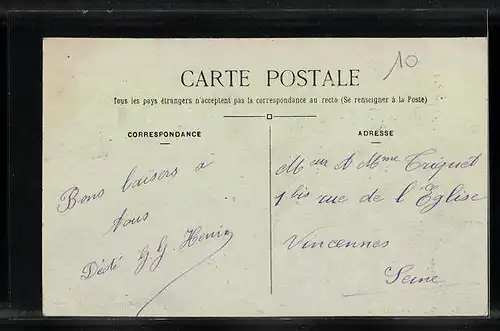 10
CARTE POSTALE
Tous les pays étrangers n'acceptent pas la correspondance au recto (Se renseigner à la Poste)
CORRESPONDANCE
Bons baisers à
tous
G. G. Henin
ADRESSE
Mme Triquet
1 bis rue de l'Eglise
Vincennes
Seine